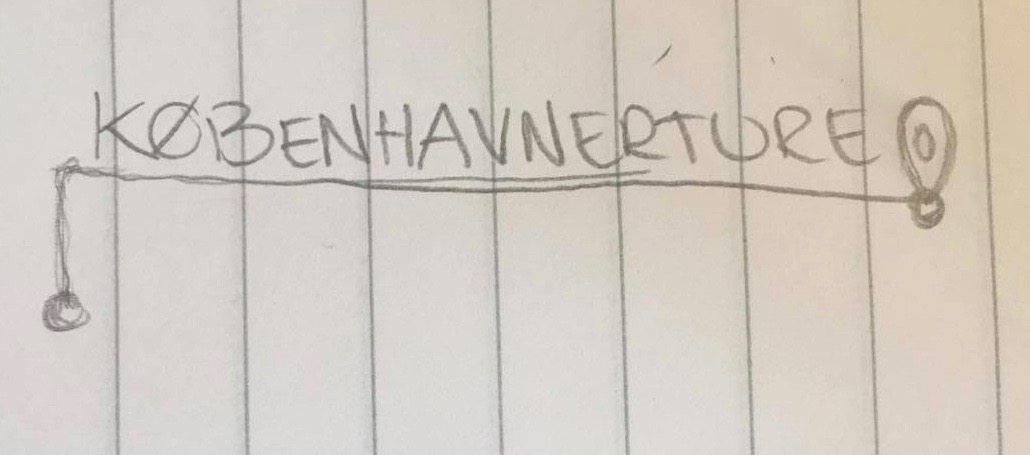 KØBENHAVNERTURE